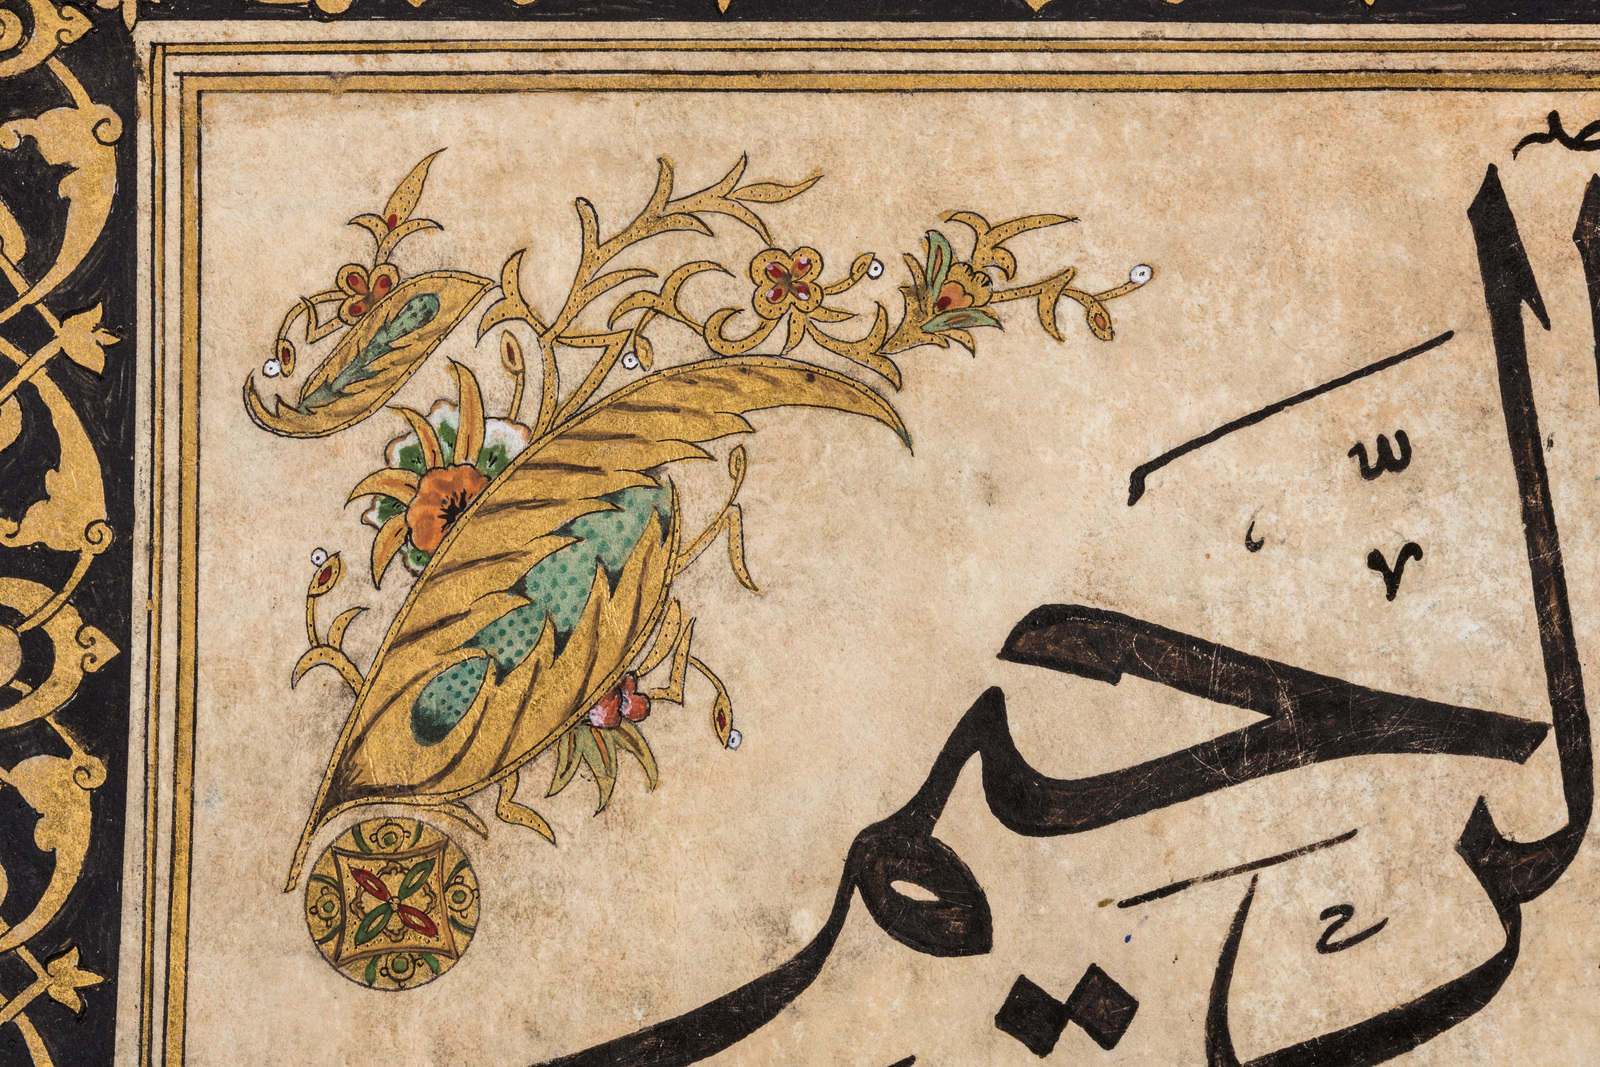 الرحيم